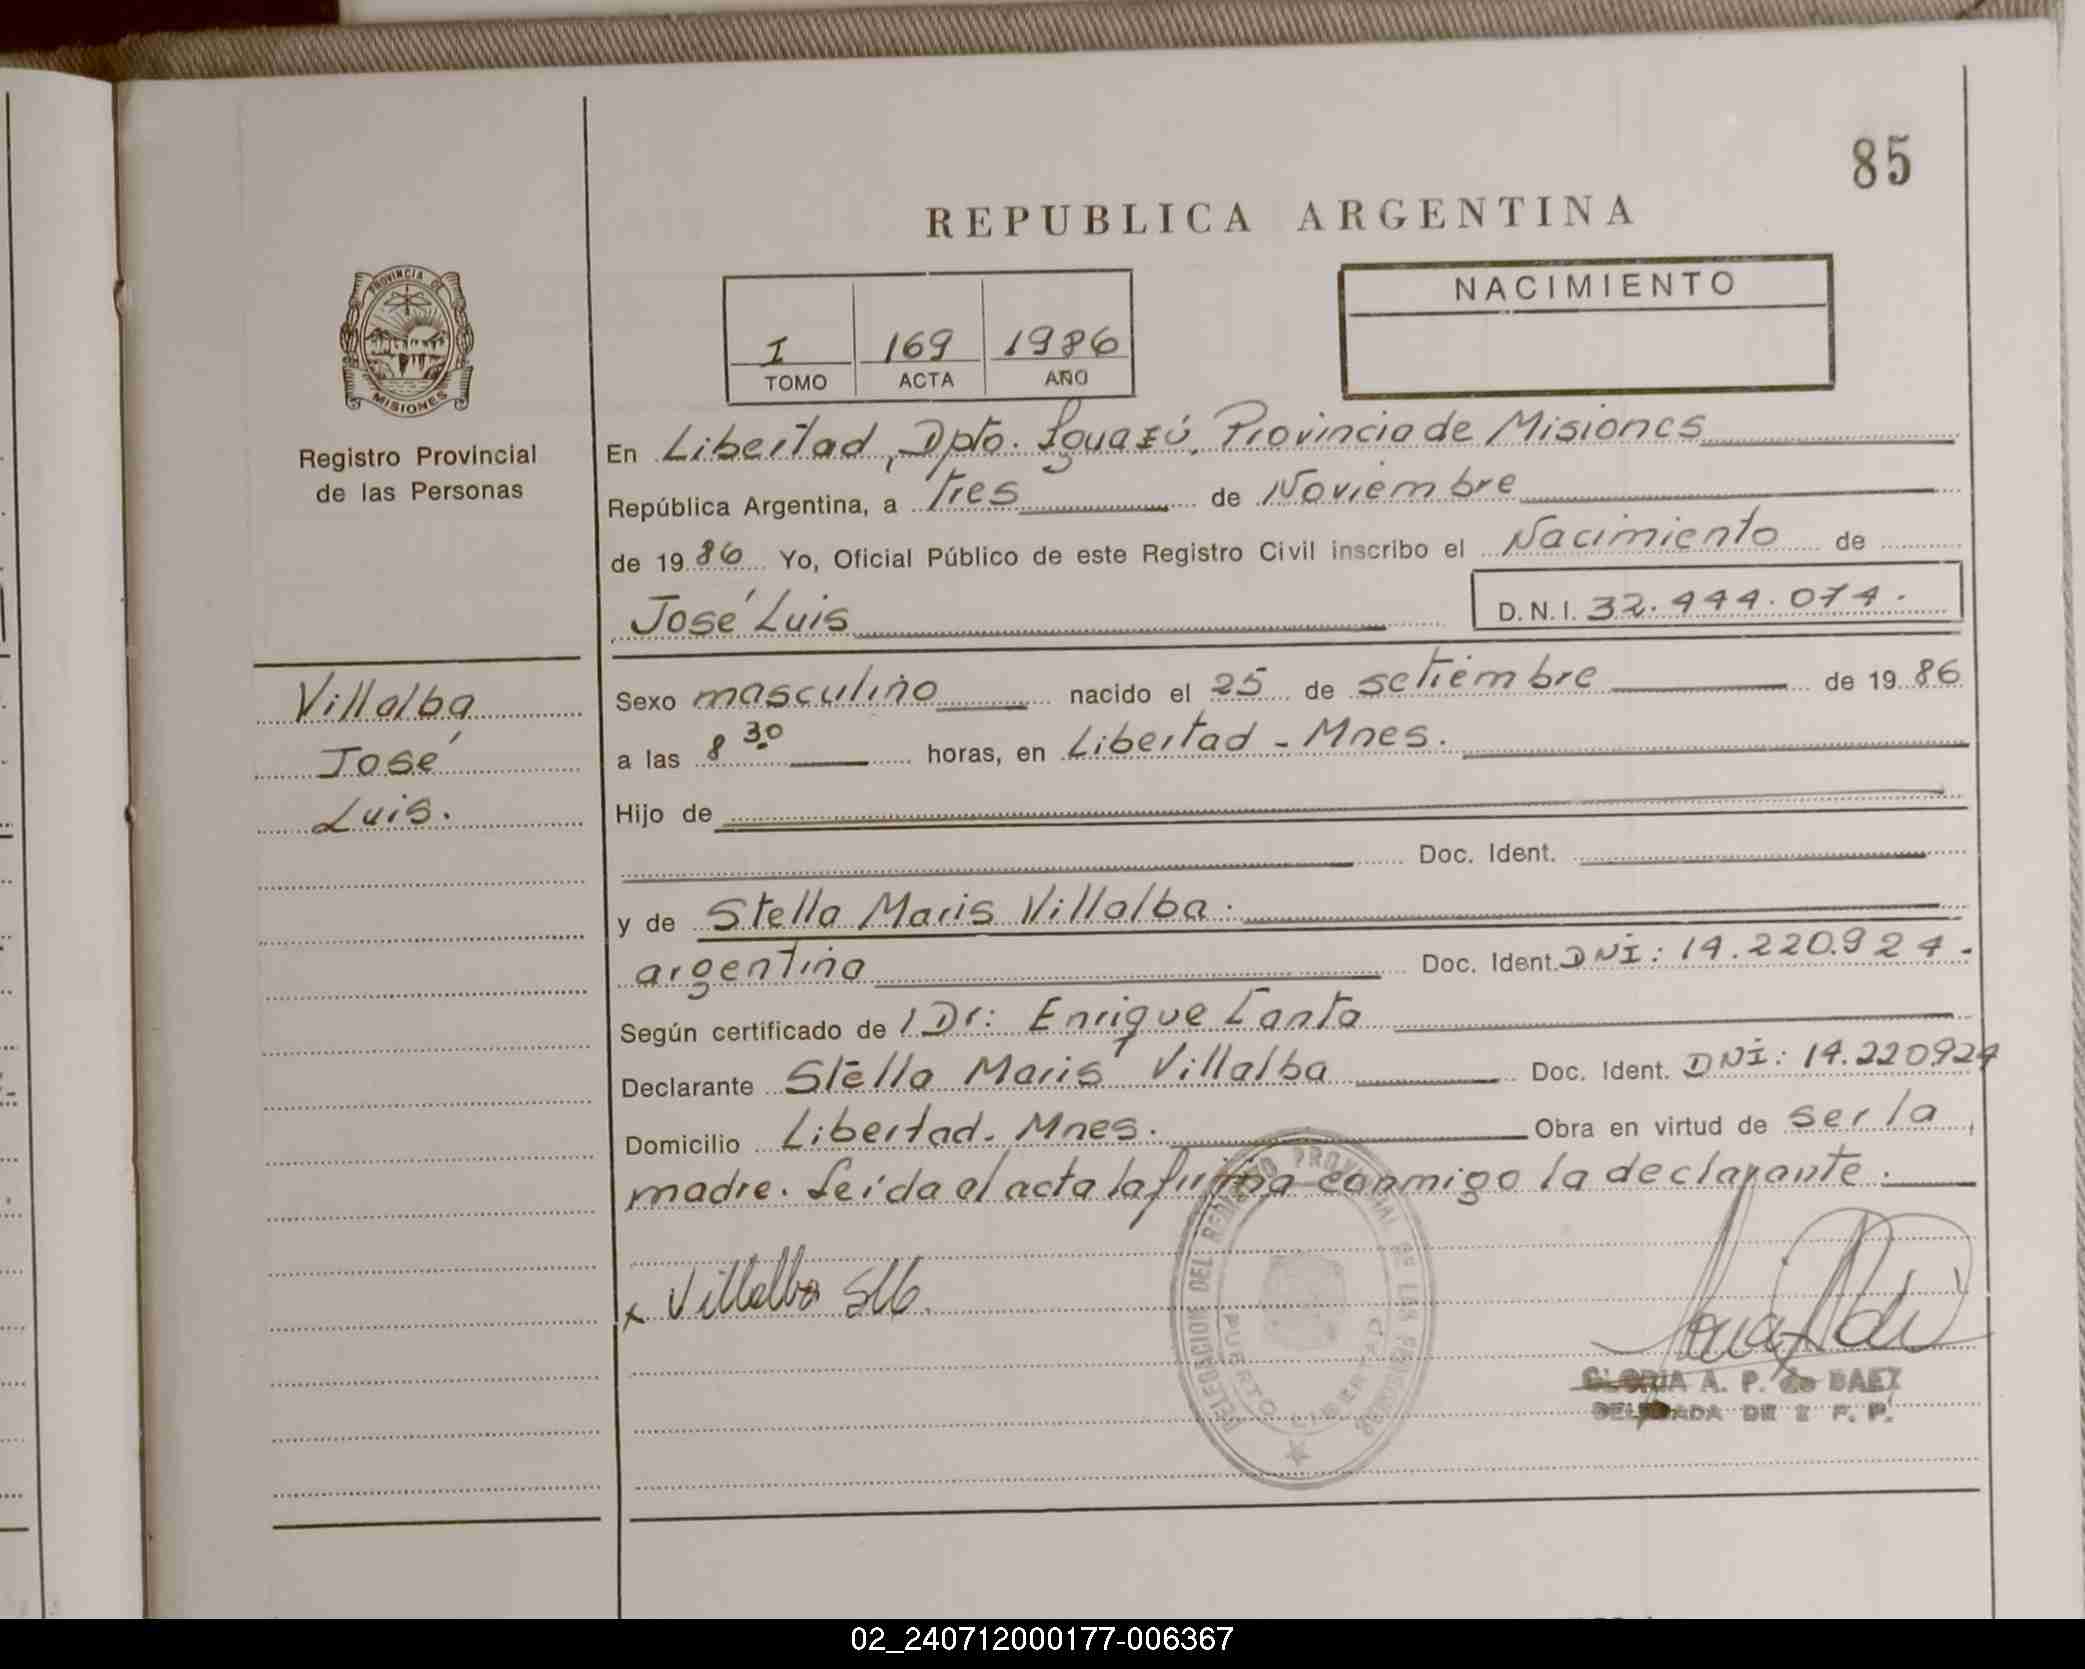 85
REPUBLICA ARGENTINA
PROVINCIA DE
MISIONES
Registro Provincial
de las Personas
I 169 1986
TOMO ACTA AÑO
NACIMIENTO
En Libertad, Dpto. Iguazú, Provincia de Misiones
República Argentina, a tres de Noviembre
de 1986 Yo, Oficial Público de este Registro Civil inscribo el Nacimiento de
José Luis D.N.I. 32.444.074.
Villalba
José
Luis.
Sexo masculino nacido el 25 de setiembre de 1986
a las 8 30 horas, en Libertad - Mnes.
Hijo de
Doc. Ident.
y de Stella Maris Villalba.
argentina Doc. Ident. DNI: 14.220.924.
Según certificado de Dr: Enrique
Declarante Stella Maris Villalba Doc. Ident. DNI: 14.220924
Domicilio Libertad. Mnes. Obra en virtud de ser la
madre. Leída el acta la firma conmigo la declarante.
x Villalba SM.
DELEGACION DEL REGISTRO PROVINCIAL DE LAS PERSONAS
PUERTO LIBERTAD
GLORIA A. P. de BAEZ
DELEGADA DE R. P. P.
02_240712000177-006367